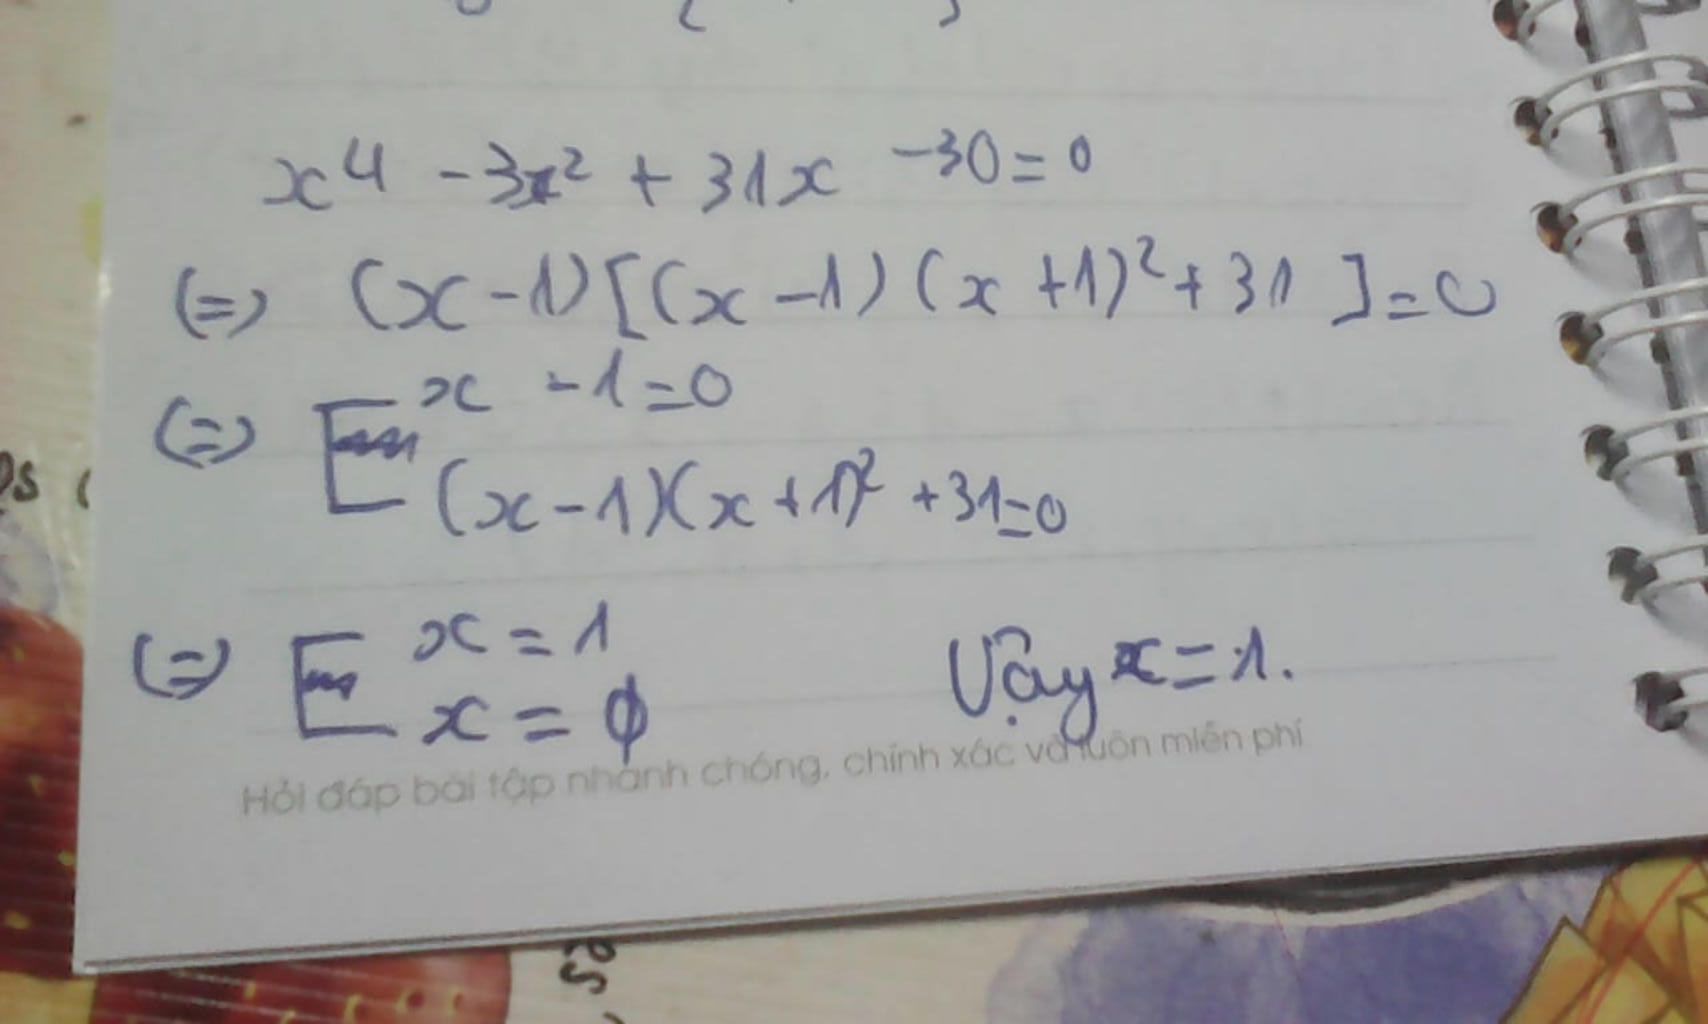 x⁴ - 3x² + 31x - 30 = 0
(=) (x - 1) [(x - 1) (x + 1)² + 31 ] = 0
(=) [ x - 1 = 0
(x - 1)(x + 1)² + 31 = 0
(=) [ x = 1
x = ϕ Vậy x = 1.
Hỏi đáp bài tập nhanh chóng, chính xác và luôn miễn phí